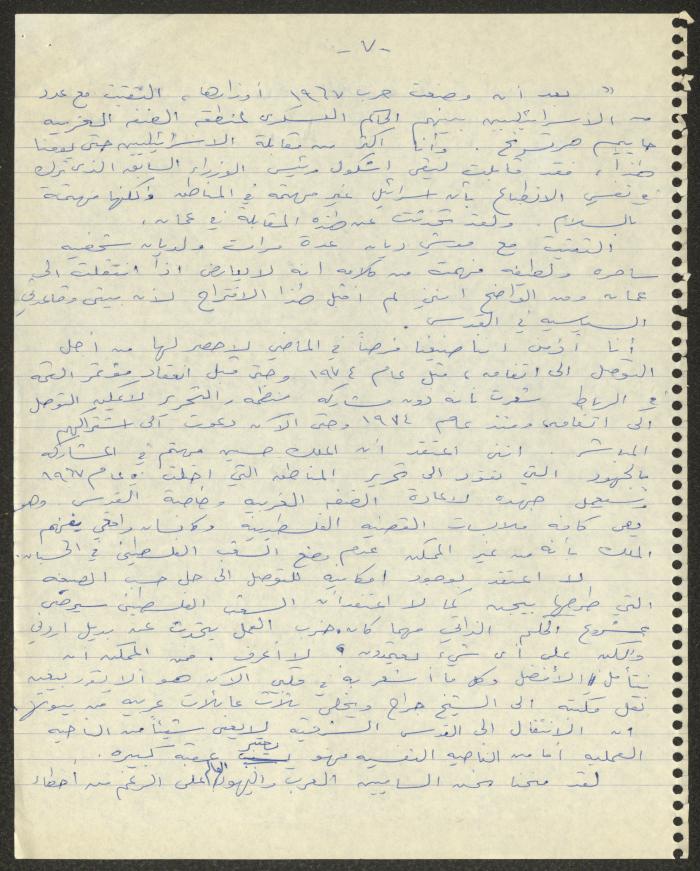 - ٧ -
" بعد أن وضعت حرب ١٩٦٧ أوزارها، التقيت مع عدد
من الاسرائيليين بينهم الحاكم العسكري لمنطقة الضفة الغربية
حاييم هرتسوغ. وأنا أكثر من مقابلة الاسرائيليين حتى يومنا
هذا، فقد قابلت ليفي اشكول رئيس الوزراء السابق الذي ترك
في نفسي الانطباع بأن اسرائيل غير مهتمة في المناطق ولكنها مهتمة
بالسلام. ولقد تحدثت عن هذه المقابلة في عمان.
التقيت مع موشي ديان عدة مرات ولديان شخصية
ساحرة ولطيفة فهمت من كلامه انه لا يعارض اذا انتقلت الى
عمان ومن الواضح انني لم اقبل هذا الاقتراح لأن بيتي وقاعدتي
السياسية في القدس.
أنا أؤمن اننا ضيعنا فرصاً في الماضي لا حصر لها من أجل
التوصل الى اتفاق، قبل عام ١٩٧٤ وحتى قبل انعقاد مؤتمر القمة
في الرباط شعرت بأنه دون مشاركة منظمة التحرير لا يمكن التوصل
الى اتفاق، ومنذ عام ١٩٧٤ وحتى الآن دعوت الى اشتراكهم
المباشر. انني اعتقد ان الملك حسين مهتم في المشاركة
بالجهود التي تقود الى تحرير المناطق التي احتلت في عام ١٩٦٧
وسيعمل جهده لاعادة الضفة الغربية وخاصة القدس وهو
يعي كافة ملابسات القضية الفلسطينية وكإنسان واقعي يفهم
الملك بأنه من غير الممكن عدم وضع الشعب الفلسطيني في الحسبان.
لا اعتقد بوجود امكانية للتوصل الى حل حسب الصيغة
التي طرحها بيجن كما لا اعتقد ان الشعب الفلسطيني سيرضى
بمشروع الحكم الذاتي مهما كان. حزب العمل يتحدث عن بديل اردني
ولكن على أي شيء يعتمدون؟ لا اعرف. من الممكن ان
نتأمل الأفضل وكل ما أشعر به في قلبي الآن هو ألا يقرر بيجن
نقل مكتبه الى الشيخ جراح ويخلي ثلاث عائلات عربية من بيوتها.
ان الانتقال الى القدس الشرقية لا يعني شيئاً من الناحية
العملية أما من الناحية النفسية فهو يعتبر عقبة كبيرة.
لقد منحنا نحن الساميين العرب واليهود العالم على الرغم من أخطاء